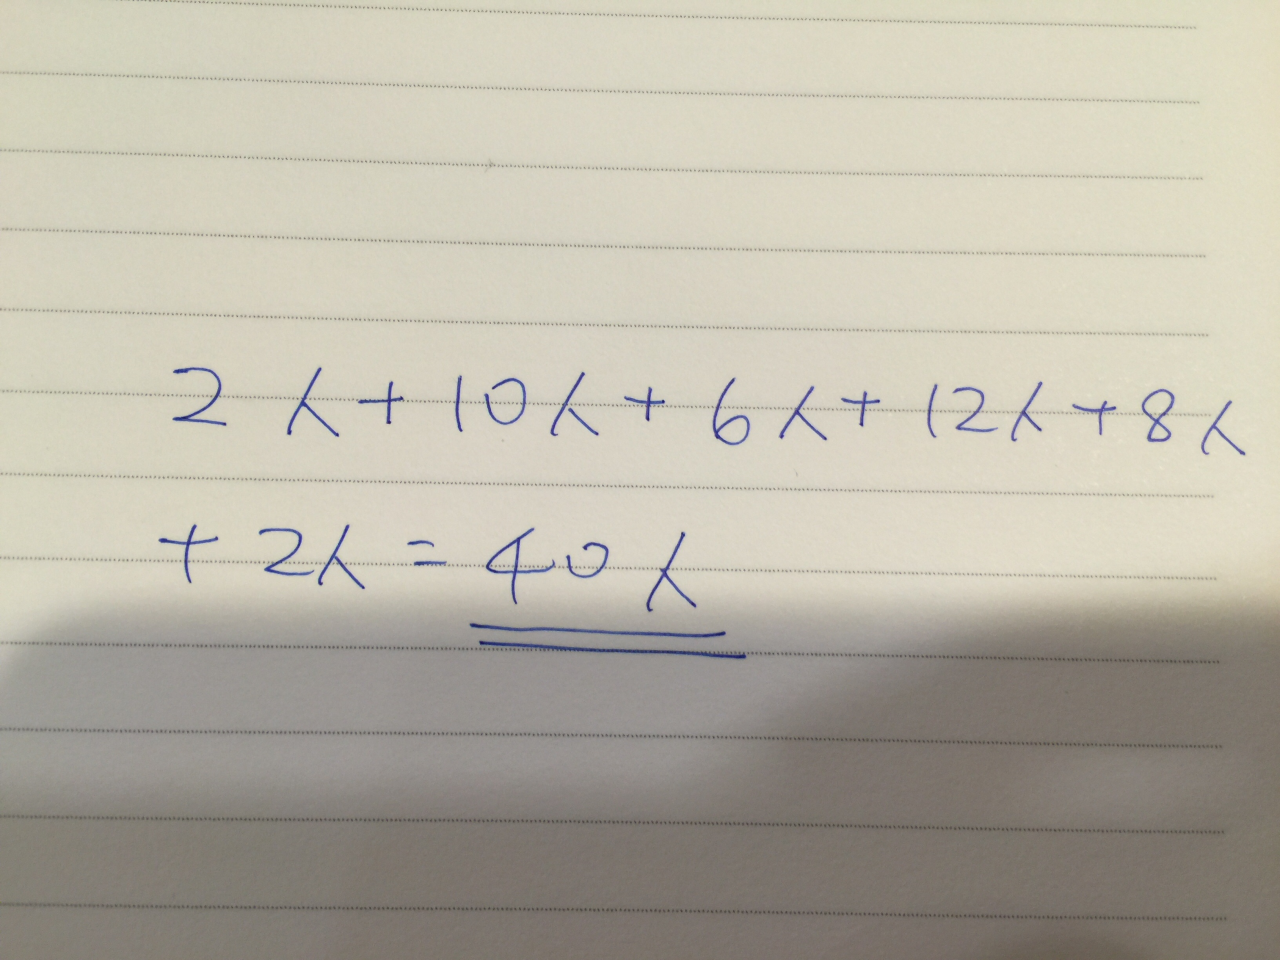 2人+10人+6人+12人+8人
+2人=40人